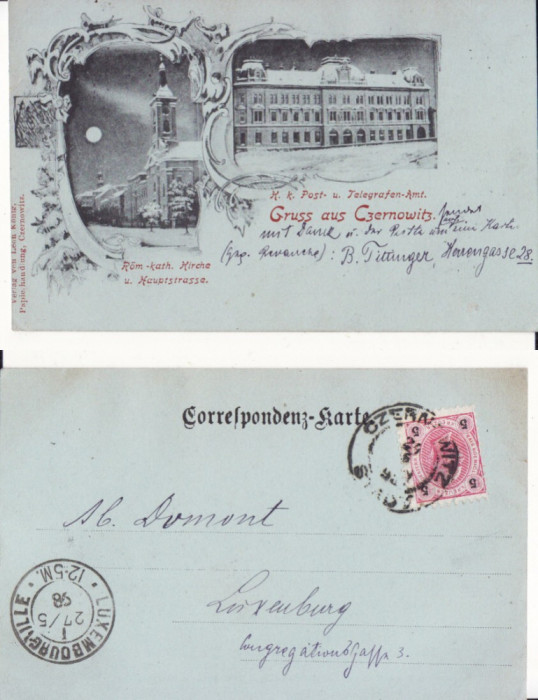 K. k. Post- u. Telegrafen-Amt.
Gruss aus Czernowitz.
sendet
mit Dank u. der Bitte um eine Karte
B. Tittinger, Herrengasse 28.
Röm.-kath. Kirche
u. Hauptstrasse.
Verlag von Leon König,
Papierhandlung, Czernowitz.
Correspondenz-Karte
CZERNOWITZ
5 5
5 5
Ab. Domont
Luxenburg
Congregationstrasse 3.
LUXEMBOURG-VILLE
12-5M.
27/5
98